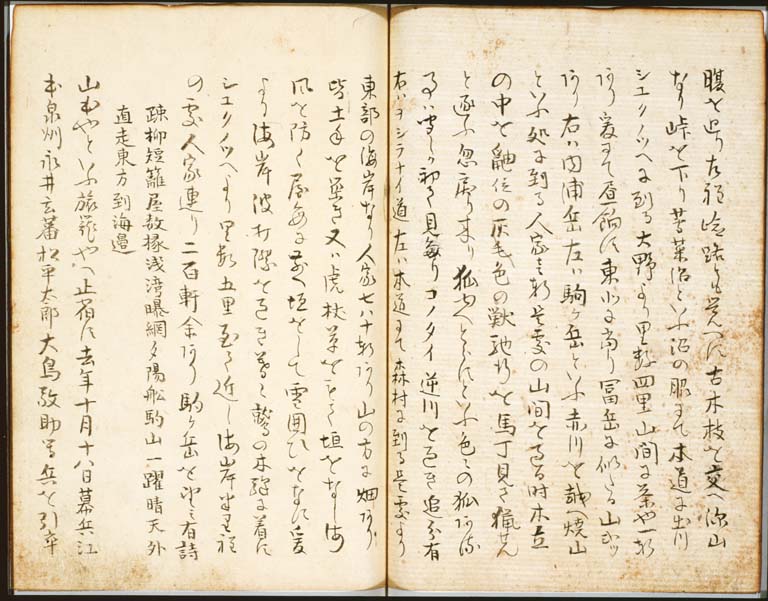 腹を廻り左程嶮路とも覚へに古木枝を交へ深山
なり峠を下り蓴菜沼といふ沼の脇まて本道に出川
シユクノツヘに到る大野より里数四里山間に茶や一軒
あり爰まて昼餉に東北に当り冨岳に似たる山あり
あり右ハ内浦岳左ハ駒ヶ岳といふ赤川を越へ焼山
といふ処に到る人家三軒是処の山間を通る時木立
の中を鼬位の灰毛色の獣馳行を馬丁見さ猟せん
と逐ふ忽走り来り狐也へとらにといふ色々の狐
るハ初て見毎りコノタイ逆川を過き追分有
右ハヲシラナイ道左ハ本道まて森村に到る是処より
東部の海岸なり人家七八十軒あり山の方に畑あり
皆土手を築き又ハ虎杖草をもて垣をなし海
風を防く屋毎に高く垣をして雪囲ひをなに爰
より海岸波打際を過き鷲の木駅に着に
シユクノツヘより里数五里至て近し海岸半里程
の処人家連り二百軒余あり駒ヶ岳を望み有詩
疎柳短籬屋数椽浅湾曝網夕陽船駒山一躍晴天外
直走東方到海邉
山本やといふ旅籠やへ止宿に去年十月十八日幕兵江
本泉州永井玄蕃松平太郎大鳥敬助等兵を引卒